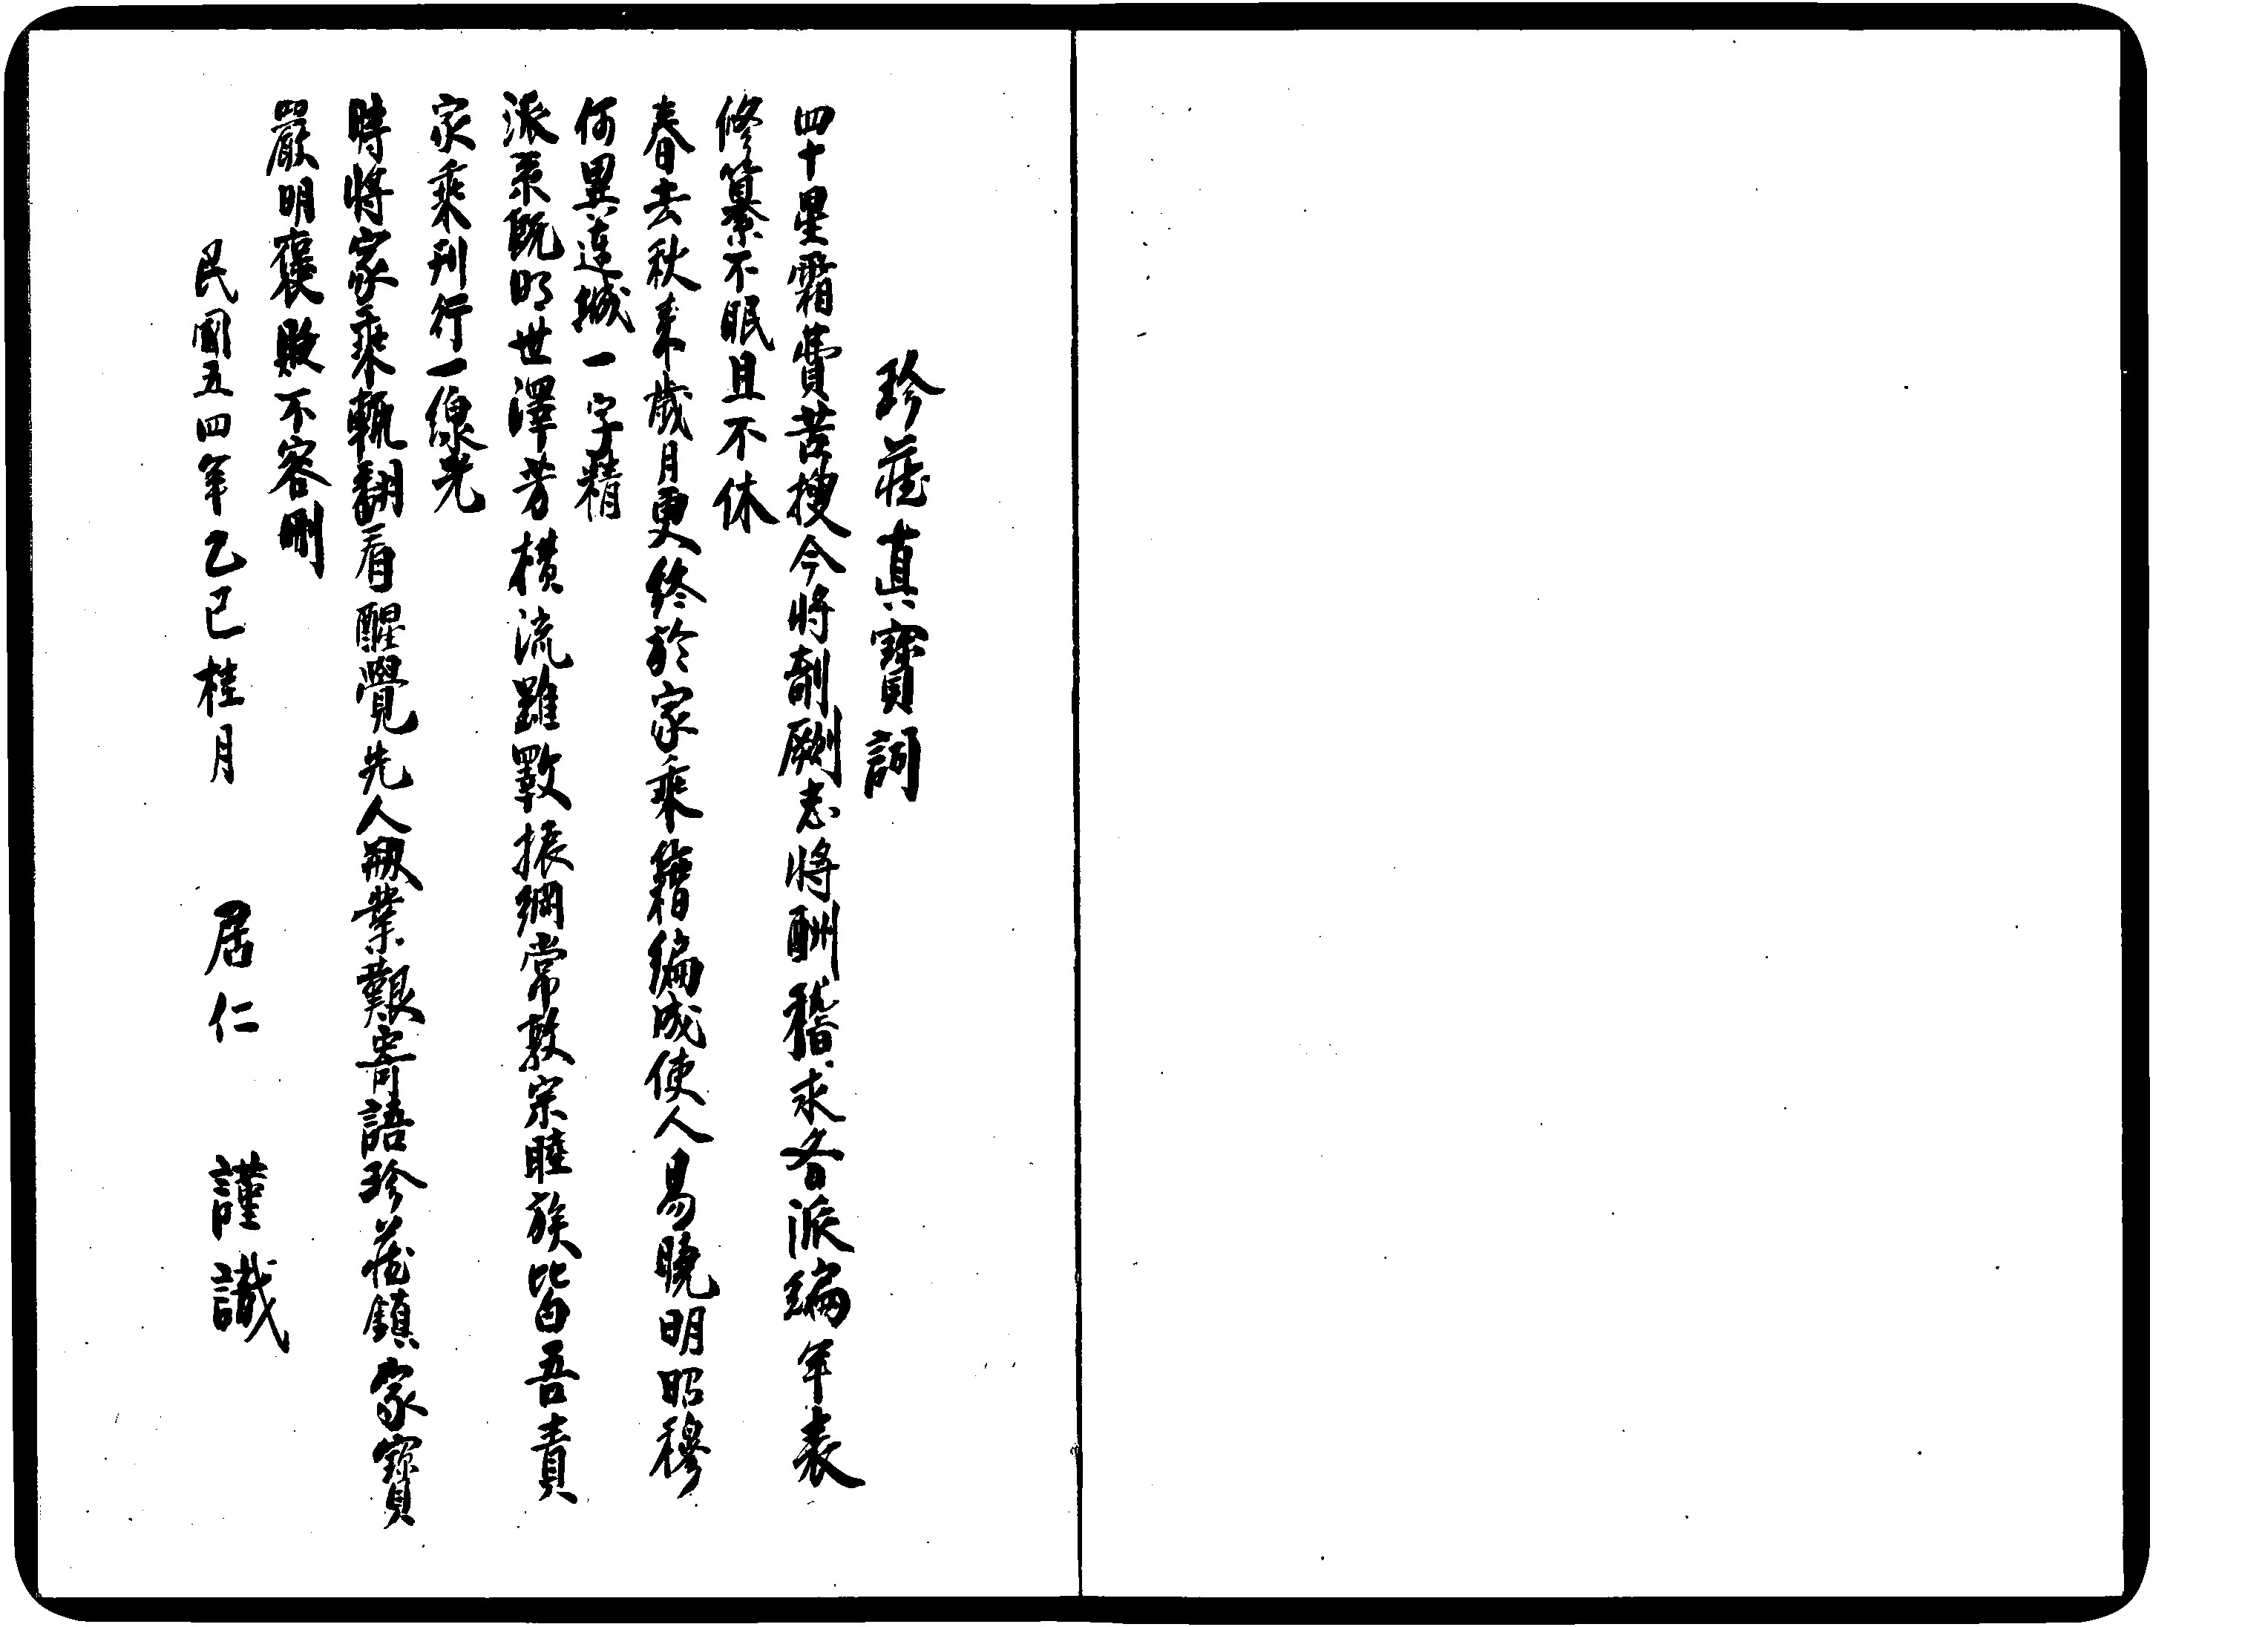 珍藏真寶詞
四十星霜費苦搜今將剞劂志將酬稽求各派編年表
修纂不眠且不休
春去秋來歲月更終於家乘籍編成使人易曉明昭穆
何異連城一字精
派系既明世澤芳橫流雖斁振綱常敦宗睦族皆吾責
家乘刊行一線光
時將家乘輒翻看醒覺先人剏業艱寄語珍藏鎮家寶
嚴明褒貶不容刪
民國五四年乙巳桂月 居仁 謹識